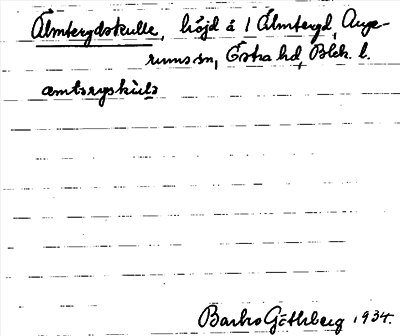 Älmterydskulle, höjd å 1 Älmteryd, Auge-
rums sn, Östra hd, Blek. l.
ämtəryskùlə
Barbro Göthberg 1934.